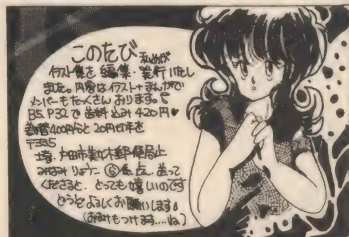 このたび 私めが
イラスト集を編集・発行いたし
ました。内容はイラスト+まんがで
メンバーもたくさんおります。
B5, P32で送料込み420円♥
400円分と20円切手を
〒335
埼、戸田市美女木郵便局止
みなみりょうこ 迄、送って
くださると、とっても嬉しいのです
どうぞよろしくお願いします。
(おまけもつけます……ね)